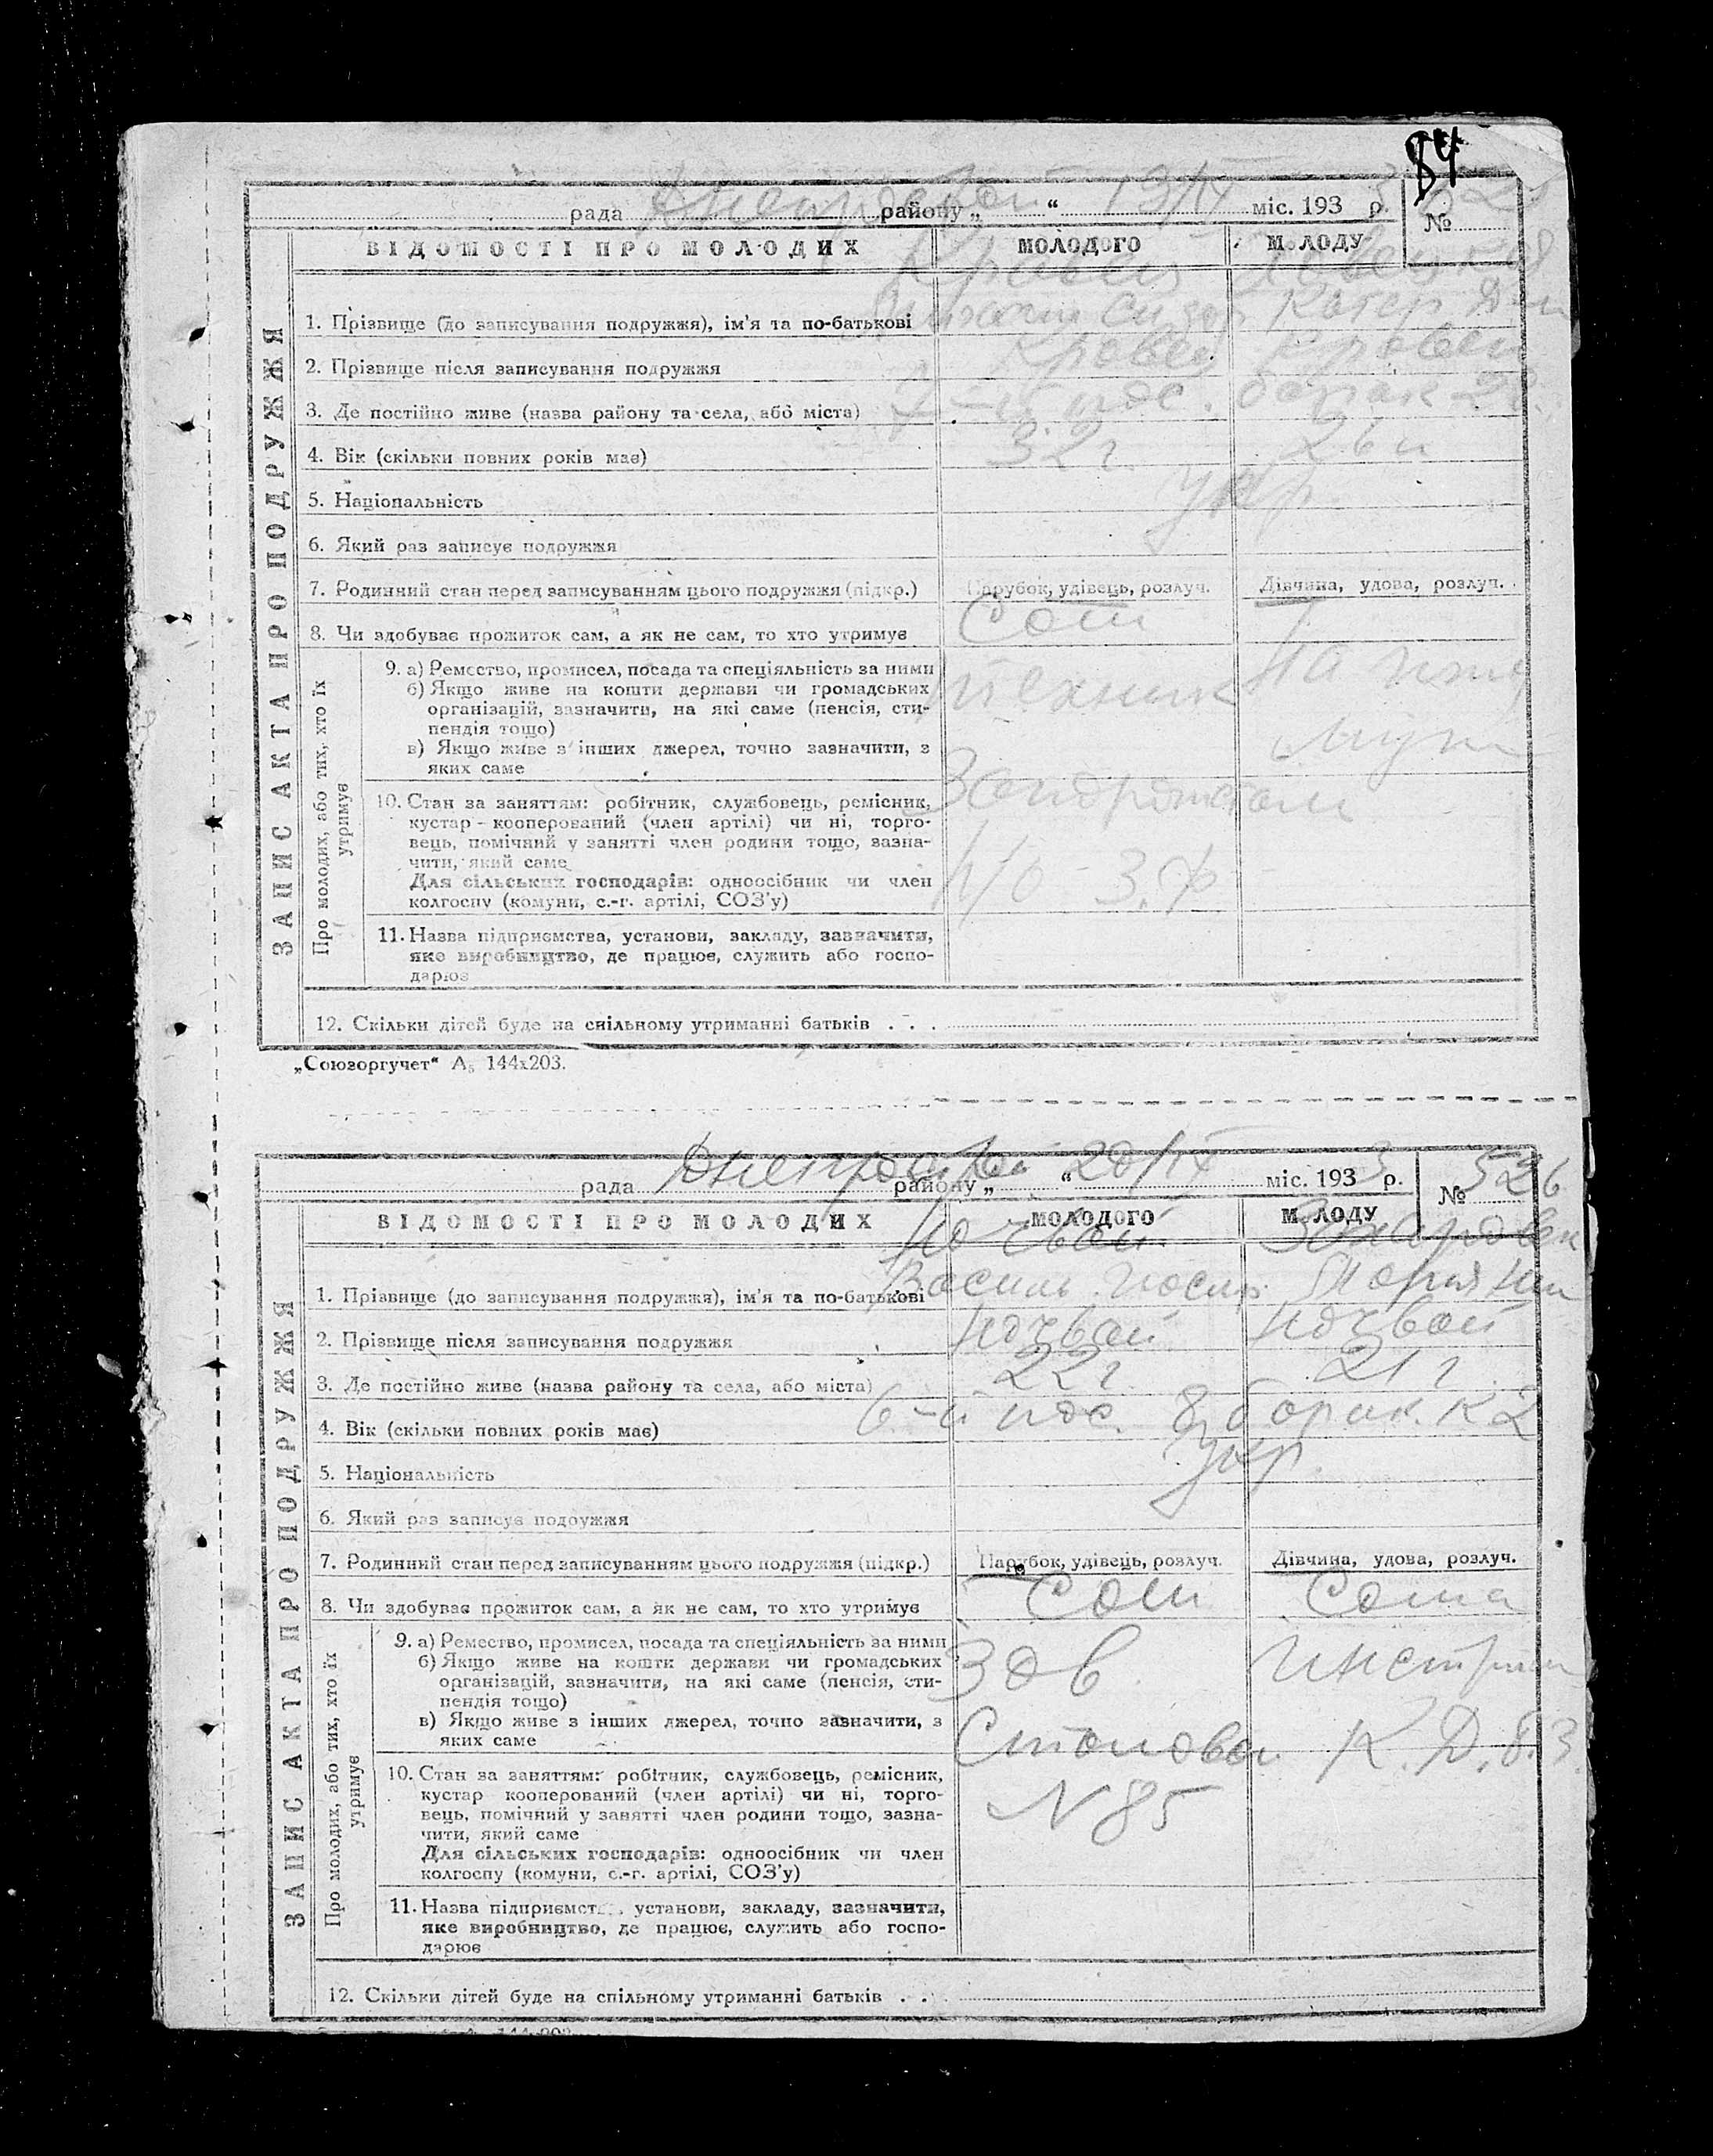 84
рада району „ “ 13/IX міс. 1933 р. №
ВІДОМОСТІ ПРО МОЛОДИХ МОЛОДОГО МОЛОДУ
ЗАПИС АКТА ПРО ПОДРУЖЖЯ
1. Прізвище (до записування подружжя), ім’я та по-батькові
2. Прізвище після записування подружжя
3. Де постійно живе (назва району та села, або міста) 7-й пос. барак
4. Вік (скільки повних років має) 32 г. 26 л
5. Національність укр.
6. Який раз записує подружжя
7. Родинний стан перед записуванням цього подружжя (підкр.) Парубок, удівець, розлуч. Дівчина, удова, розлуч.
8. Чи здобуває прожиток сам, а як не сам, то хто утримує Сам
Про молодих, або тих, хто їх утримує
9. а) Ремество, промисел, посада та спеціяльність за ними
б) Якщо живе на кошти держави чи громадських
організацій, зазначити, на які саме (пенсія, сти-
пендія тощо)
в) Якщо живе з інших джерел, точно зазначити, з
яких саме
технік На иж. мужа
10. Стан за заняттям: робітник, службовець, ремісник,
кустар – кооперований (член артілі) чи ні, торго-
вець, помічний у занятті член родини тощо, зазна-
чити, який саме
Для сільських господарів: одноосібник чи член
колгоспу (комуни, с.-г. артілі, СОЗ’у)
11. Назва підприємства, установи, закладу, зазначити,
яке виробництво, де працює, служить або госпо-
дарює
12. Скільки дітей буде на спільному утриманні батьків . . .
„Союзоргучет“ А₅ 144х203.
рада району „ “ 20/IX міс. 1933 р. № 526
ВІДОМОСТІ ПРО МОЛОДИХ МОЛОДОГО МОЛОДУ
ЗАПИС АКТА ПРО ПОДРУЖЖЯ
1. Прізвище (до записування подружжя), ім’я та по-батькові
2. Прізвище після записування подружжя
3. Де постійно живе (назва району та села, або міста) 22 г. 21 г.
4. Вік (скільки повних років має) 6-й пос. 8 барак. к 2
5. Національність укр.
6. Який раз записує подружжя
7. Родинний стан перед записуванням цього подружжя (підкр.) Парубок, удівець, розлуч. Дівчина, удова, розлуч.
8. Чи здобуває прожиток сам, а як не сам, то хто утримує Сам Сама
Про молодих, або тих, хто їх утримує
9. а) Ремество, промисел, посада та спеціяльність за ними
б) Якщо живе на кошти держави чи громадських
організацій, зазначити, на які саме (пенсія, сти-
пендія тощо)
в) Якщо живе з інших джерел, точно зазначити, з
яких саме
Зав.
Столовой
N 85
10. Стан за заняттям: робітник, службовець, ремісник,
кустар кооперований (член артілі) чи ні, торго-
вець, помічний у занятті член родини тощо, зазна-
чити, який саме
Для сільських господарів: одноосібник чи член
колгоспу (комуни, с.-г. артілі, СОЗ’у)
11. Назва підприємства, установи, закладу, зазначити,
яке виробництво, де працює, служить або госпо-
дарює
12. Скільки дітей буде на спільному утриманні батьків . . .